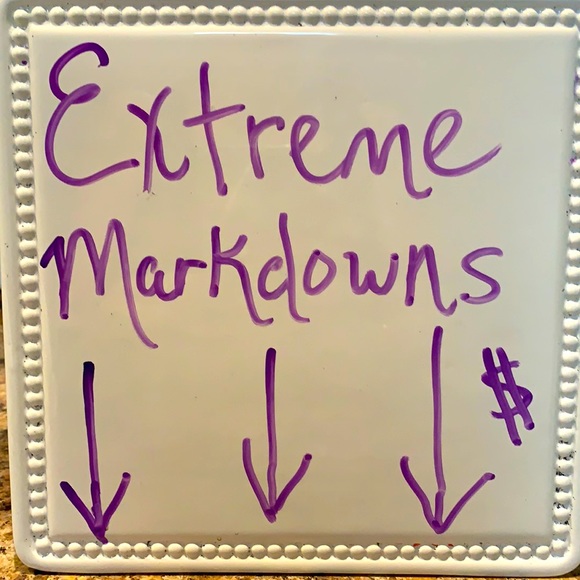 Extreme
Markdowns
↓ ↓ ↓ $